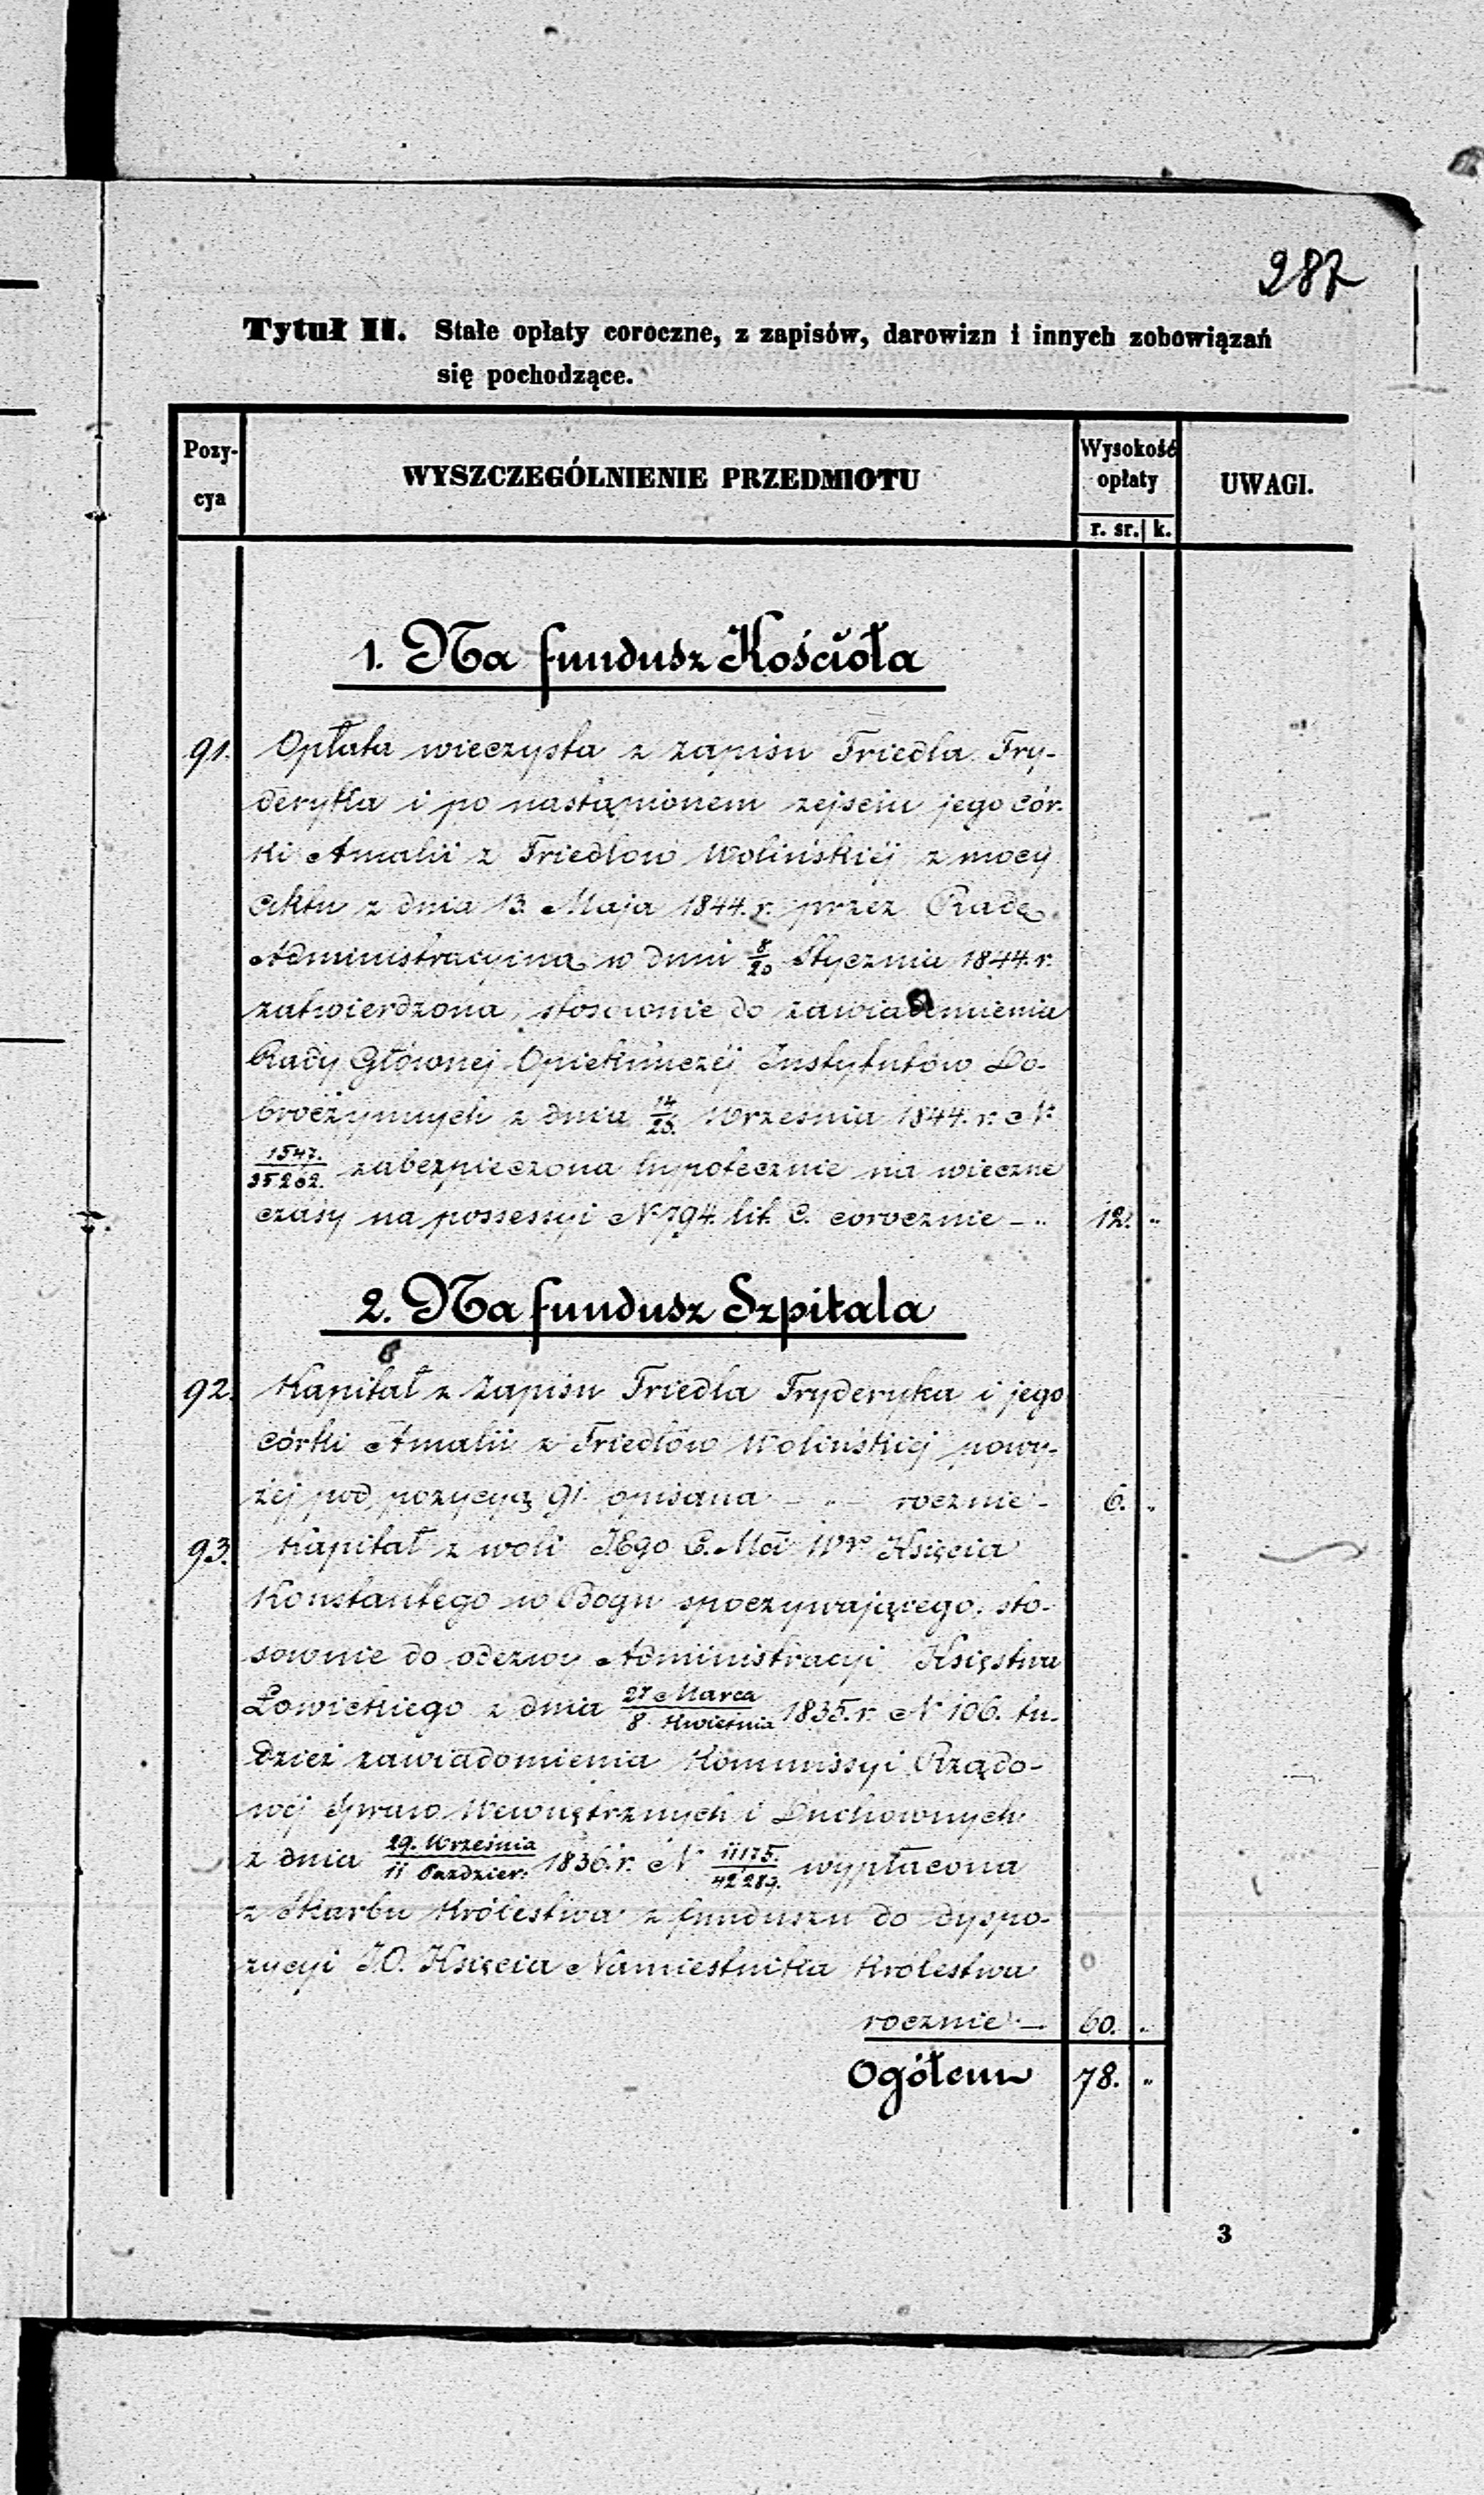 287
Tytuł II. Stałe opłaty coroczne, z zapisów, darowizn i innych zobowiązań
się pochodzące.
Pozy-
cya
WYSZCZEGÓLNIENIE PRZEDMIOTU
Wysokość
opłaty
r. sr. k.
UWAGI.
1. Na fundusz Kościoła
91. Opłata wieczysta z zapisu Friedla Fry-
deryka i po nastąpionem zejsciu jego cór-
ki Amalii z Friedlow Wolińskiéj z mocy
aktu z dnia 13. Maja 1844. r. przez Radę
Administracyjną w dniu 8/20 Stycznia 1844. r.
zatwierdzona, stosownie do zawiadomienia
Rady Głównej Opiekunczéj Instytutów Do-
broczynnych z dnia Września 1844. r. N.
1547./35262. zabezpieczona hypotecznie na wieczne
czasy na possessyi N 794. lit. C. corocznie - " 12. "
2. Na fundusz Szpitala
92. Kapitał z zapisu Friedla Fryderyka i jego
córki Amalii z Friedlów Wolińskiej powy-
żej pod pozycyą 91. opisana - " - rocznie - 6. "
93. Kapitał z woli JEgo C. Mci Wgo Księcia
Konstantego w Bogu spoczywającego, sto-
sownie do odezwy Administracyi Księstwa
Łowickiego z dnia 27 Marca/8 Kwietnia 1835. r. N 106. tu-
dzież zawiadomienia Kommissyi Rządo-
wéj Spraw Wewnętrznych i Duchownych
z dnia 29. Września/11 Paździer: 1836. r. N 11175./42289. wypłacona
z Skarbu Królestwa z funduszu do dyspo-
zycyi J.O. Księcia Namiestnika Królestwa
rocznie - 60. "
Ogółem 78. "
3